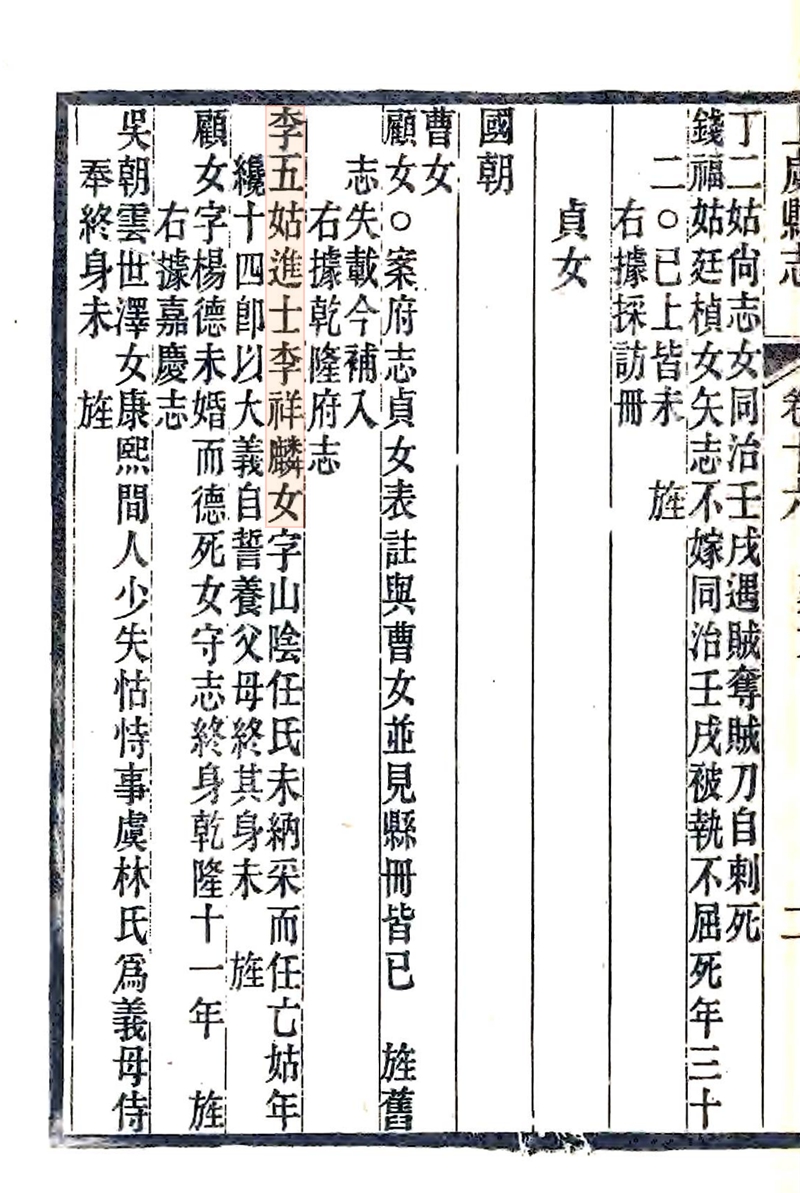 上虞縣志 卷十六
丁二姑尙志女同治壬戌遇賊奪賊刀自刺死
錢福姑廷楨女矢志不嫁同治壬戌被執不屈死年三十
二○已上皆未 旌
右據採訪冊
貞女
國朝
曹女
顧女○案府志貞女表註與曹女並見縣冊皆已 旌舊
志失載今補入
右據乾隆府志
李五姑進士李祥麟女字山陰任氏未納采而任亡姑年
纔十四卽以大義自誓養父母終其身未 旌
顧女字楊德未婚而德死女守志終身乾隆十一年 旌
右據嘉慶志
吳朝雲世澤女康熙間人少失怙恃事虞林氏爲義母侍
奉終身未 旌